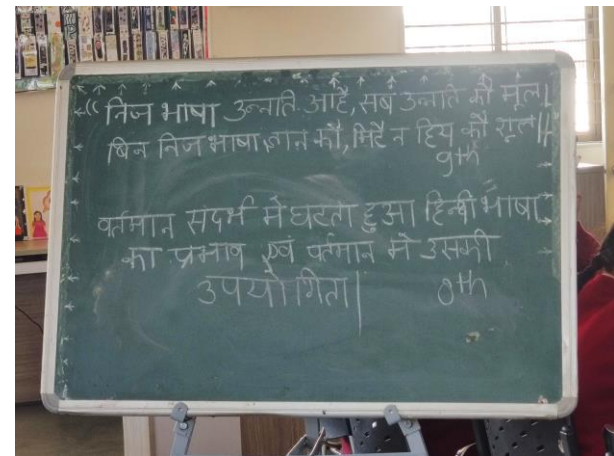 "निज भाषा उन्नति अहै, सब उन्नति कौ मूल।
बिन निज भाषा ज्ञान कौ, मिटै न हिय कौ शूल॥
9th
वर्तमान सदर्भ मे घटता हुआ हिन्दी भाषा
का प्रभाव एवं वर्तमान मे उसकी
उपयोगिता|
8th